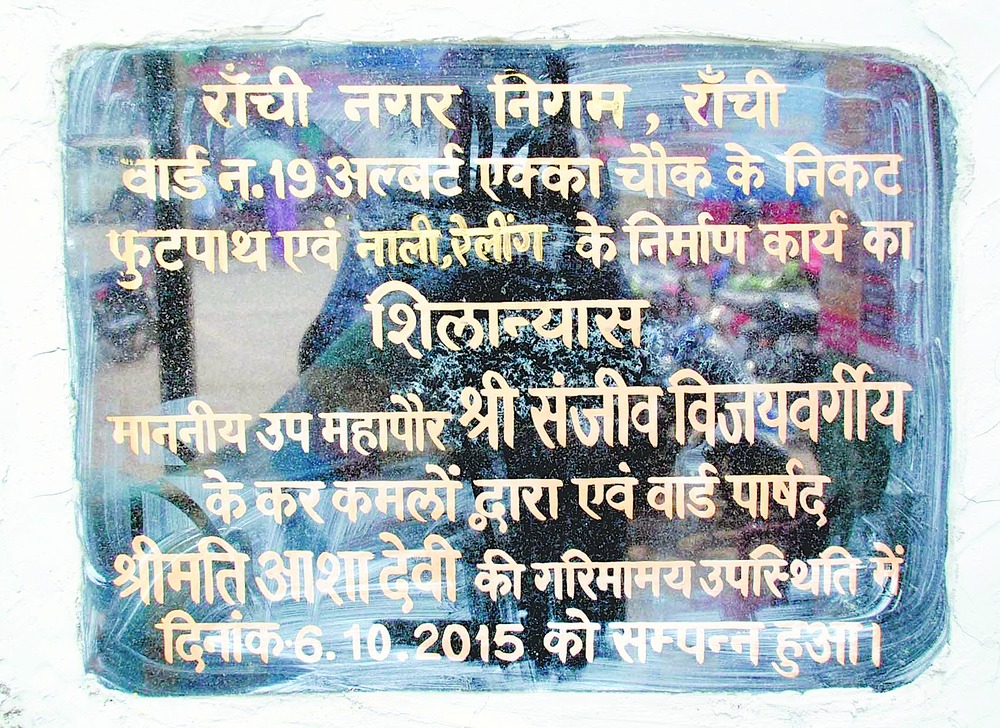 राँची नगर निगम, राँची
वार्ड न. 19 अल्बर्ट एक्का चौक के निकट
फुटपाथ एवं नाली, रेलींग के निर्माण कार्य का
शिलान्यास
माननीय उप महापौर श्री संजीव विजयवर्गीय
के कर कमलों द्वारा एवं वार्ड पार्षद
श्रीमति आशा देवी की गरिमामय उपस्थिति में
दिनांक-6.10.2015 को सम्पन्न हुआ।